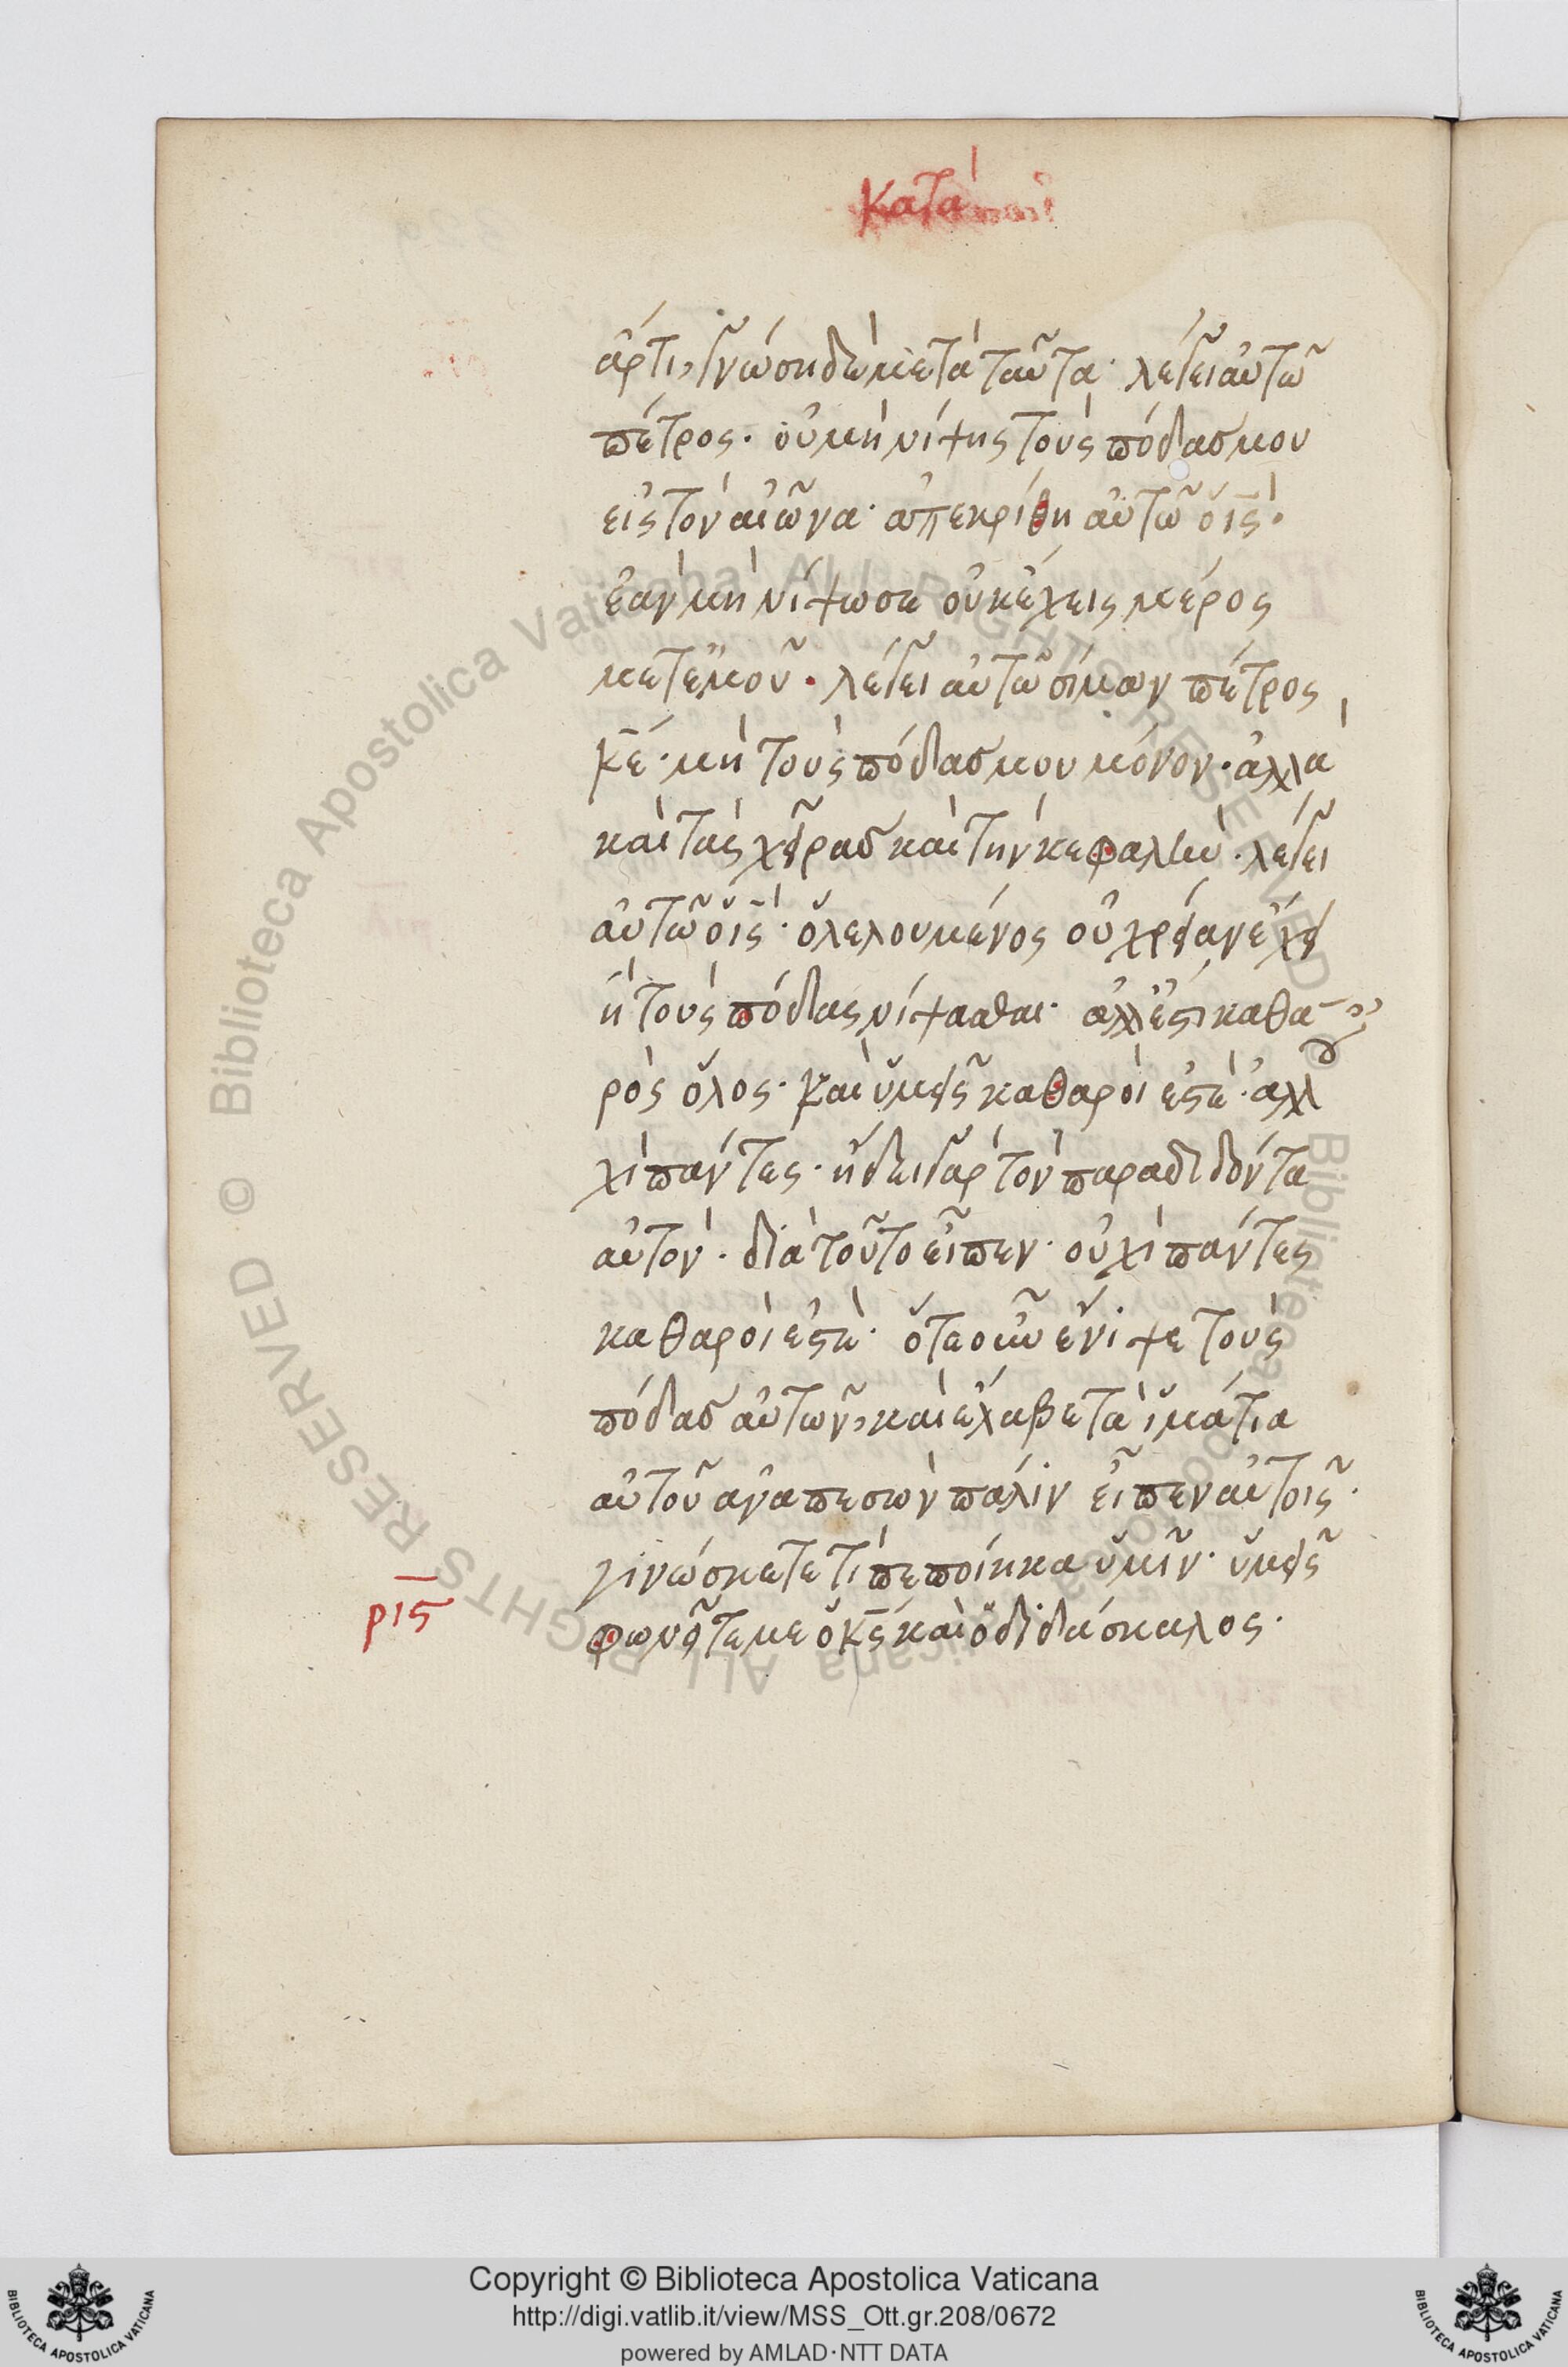 κατὰ
ἄρτι, γνώση δὲ μετὰ ταῦτα· λέγει αὐτῶ
πέτρος· οὐ μὴ νίψης τοὺς πόδας μου
εἰς τὸν αἰῶνα· ἀπεκρίθη αὐτῶ ὁ ι̅ς̅·
ἐὰν μὴ νίψω σε οὐκ ἔχεις μέρος
μετ ἐμοῦ· λέγει αὐτῶ σίμων πέτρος
κ̅ε̅· μὴ τοὺς πόδας μου μόνον· ἀλλὰ
καὶ τὰς χεῖρας καὶ τὴν κεφαλὴν· λέγει
αὐτῶ ὁ ι̅ς̅· ὁ λελουμένος οὐ χρείαν ἔχει
ἢ τοὺς πόδας νίψασθαι· ἀλλ ἔστι καθα
ρὸς ὅλος· καὶ ὑμεῖς καθαροί ἐστὲ· ἀλλ
οὐ
χὶ πάντες· ἤδει γὰρ τὸν παραδιδόντα
αὐτὸν· διὰ τοῦτο εἶπεν· οὐχὶ πάντες
καθαροὶ ἐστὲ· ὅτε οὖν ἔνιψε τοὺς
πόδας αὐτῶν, καὶ ἔλαβε τὰ ἱμάτια
αὐτοῦ ἀναπεσὼν πάλιν εἶπεν αὐτοῖς·
γινώσκετε τί πεποίηκα ὑμῖν· ὑμεῖς
ρις
φωνεῖτε με ὁ κ̅ς̅ καὶ ὁ διδάσκαλος·
© Biblioteca Apostolica Vaticana ALL RIGHTS RESERVED
© Biblioteca Apostolica Vaticana ALL RIGHTS RESERVED
Copyright © Biblioteca Apostolica Vaticana
http://digi.vatlib.it/view/MSS_Ott.gr.208/0672
powered by AMLAD·NTT DATA
BIBLIOTECA APOSTOLICA VATICANA
BIBLIOTECA APOSTOLICA VATICANA